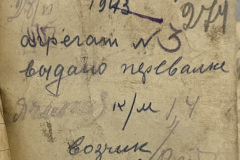 1943
274
агрегат N 3
выдано перевалке
к/м 14
возчик